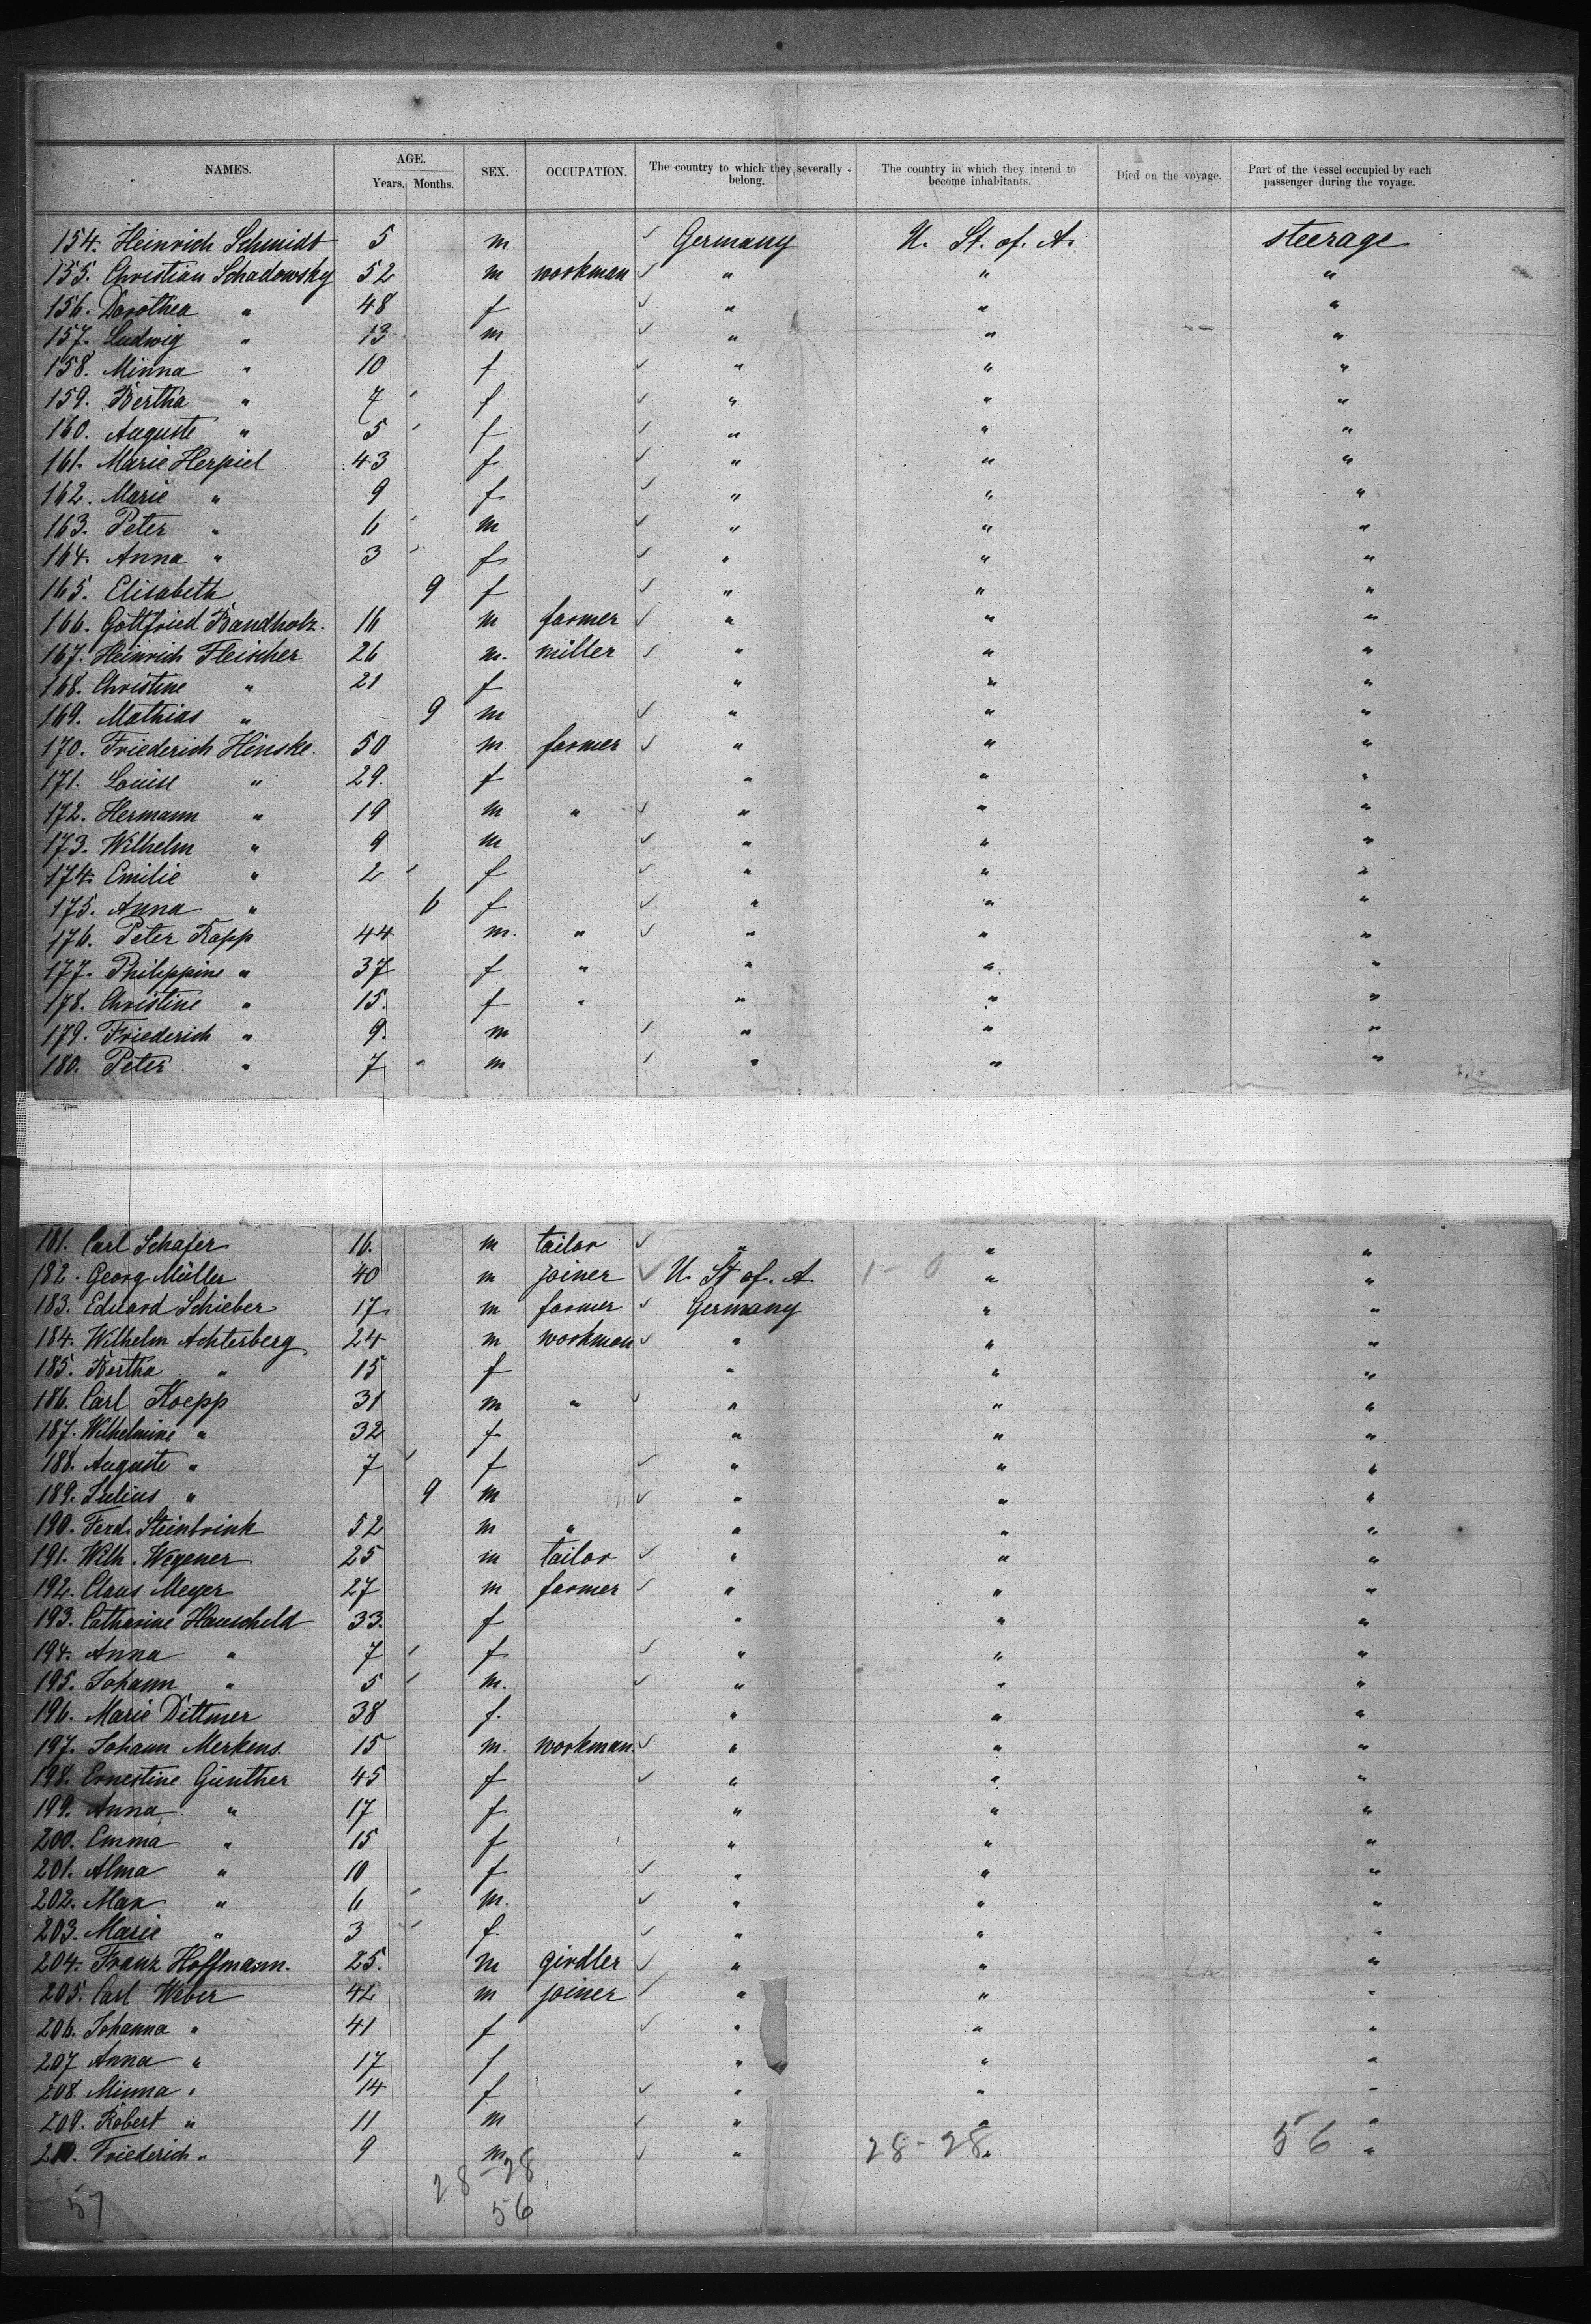 NAMES. AGE. Years. Months. SEX. OCCUPATION. The country to which they severally belong. The country in which they intend to become inhabitants. Died on the voyage. Part of the vessel occupied by each passenger during the voyage.
154. Heinrich Schmidt 5 m Germany U. St. of. A. steerage
155. Christian Schadowsky 52 m workman " " "
156. Dorothea " 48 f " " "
157. Ludwig " 13 m " " "
158. Minna " 10 f " " "
159. Bertha " 7 f " " "
160. Auguste " 5 f " " "
161. Marie Herpiel 43 f " " "
162. Marie " 9 f " " "
163. Peter " 6 m " " "
164. Anna " 3 f " " "
165. Elisabeth 9 f " " "
166. Gottfried Bandholz. 16 m farmer " " "
167. Heinrich Fleischer 26 m. miller " " "
168. Christine " 21 f " " "
169. Mathias " 9 m " " "
170. Friederich Hinske. 50 m farmer " " "
171. Louise " 29. f " " "
172. Hermann " 19 m " " " "
173. Wilhelm " 9 m " " "
174. Emilie " 2 f " " "
175. Anna " 6 f " " "
176. Peter Rapp 44 m. " " " "
177. Philippine " 37 f " " " "
178. Christine " 15. f " " " "
179. Friederich " 9. m " " "
180. Peter " 7 m " " "
181. Carl Schafer 16. m tailor " " "
182. Georg Müller 40 m joiner U. St of. A 1 - 0 " "
183. Eduard Schieber 17 m farmer Germany " "
184. Wilhelm Achterberg 24 m workman " " "
185. Bertha " 15 f " " "
186. Carl Koepp 31 m " " " "
187. Wilhelmine " 32 f " " "
188. Auguste " 7 f " " "
189. Julius " 9 m " " "
190. Ferd. Steinbrink 52 m " " " "
191. Wilh. Wegener 25 m tailor " " "
192. Claus Meyer 27 m farmer " " "
193. Catharine Hauscheld 33. f " " "
194. Anna " 7 f " " "
195. Johann " 5 m. " " "
196. Marie Dittmer 38 f. " " "
197. Johann Merkens. 15 m. workman. " " "
198. Ernestine Günther 45 f " " "
199. Anna " 17 f " " "
200. Emma " 15 f " " "
201. Alma " 10 f " " "
202. Max " 6 m. " " "
203. Marie " 3 f. " " "
204. Franz Hoffmann. 25. m girdler " " "
205. Carl Weber 42 m joiner " " "
206. Johanna " 41 f " " "
207 Anna " 17 f " " "
208. Minna " 14 f " " "
209. Robert " 11 m " " "
210. Friederich " 9 m " 28 - 28 " 56 "
28 - 28
57 56